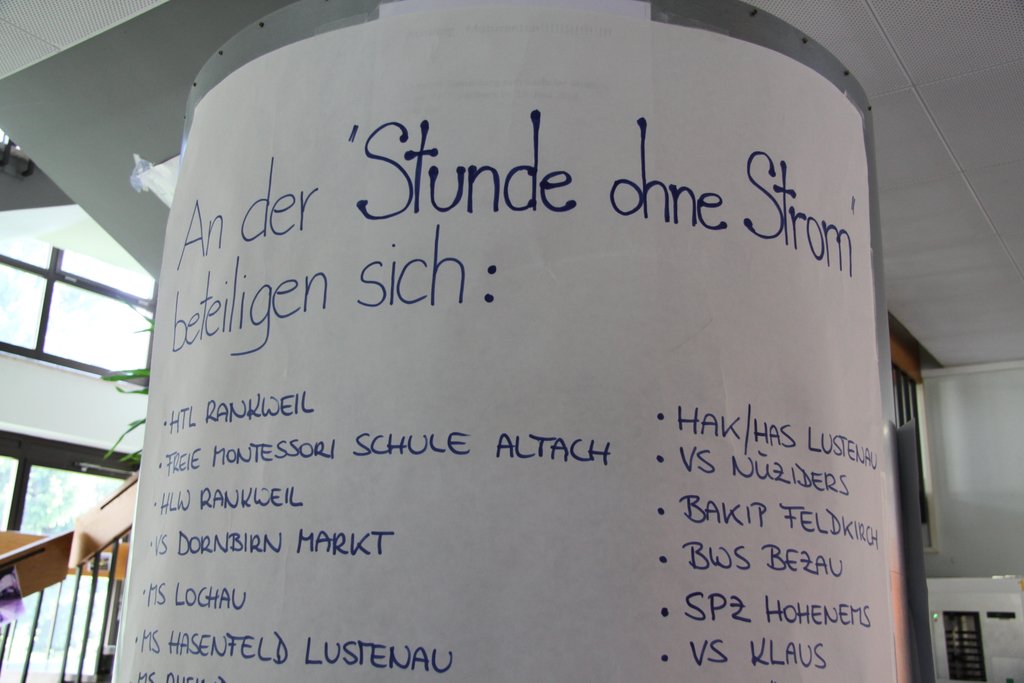 An der "Stunde ohne Strom"
beteiligen sich:
• HTL RANKWEIL
• FREIE MONTESSORI SCHULE ALTACH
• HLW RANKWEIL
• VS DORNBIRN MARKT
• MS LOCHAU
• MS HASENFELD LUSTENAU
MS
• HAK/HAS LUSTENAU
• VS NÜZIDERS
• BAKIP FELDKIRCH
• BWS BEZAU
• SPZ HOHENEMS
• VS KLAUS